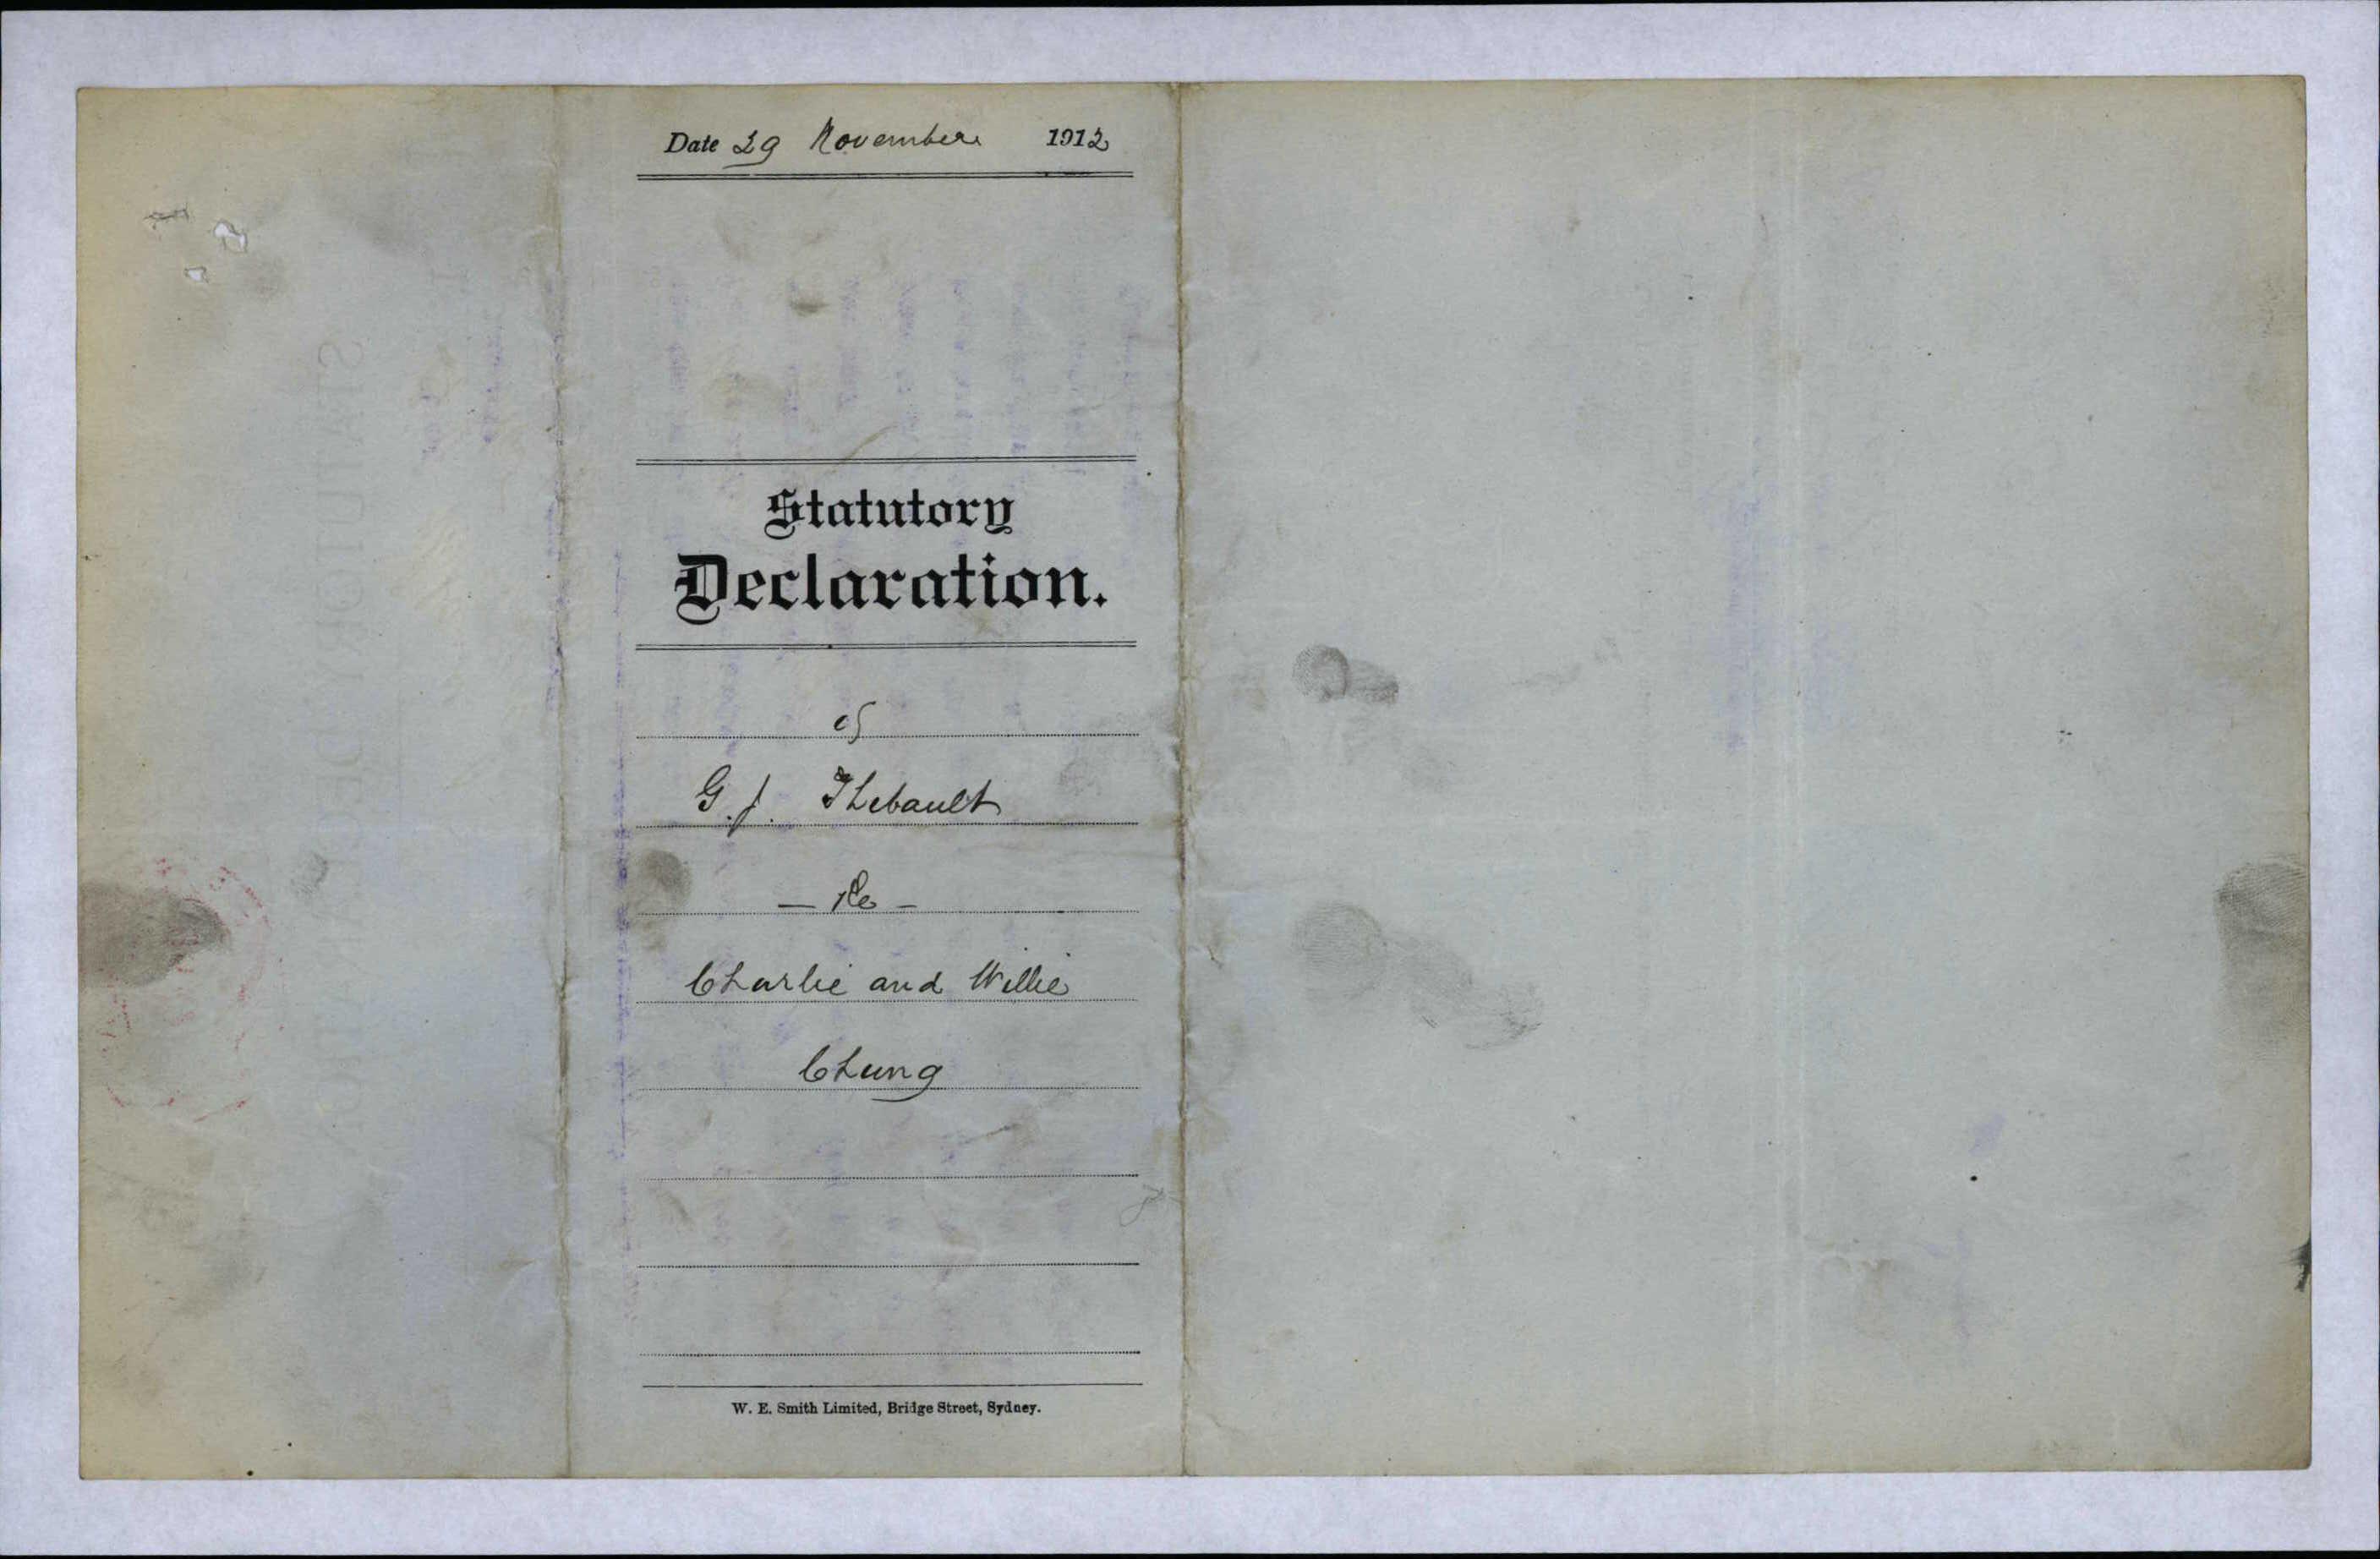 Date 29 November 1912
Statutory
Declaration.
of
G. J. Thebault
— Re —
Charlie and Willie
Chung
W. E. Smith Limited, Bridge Street, Sydney.